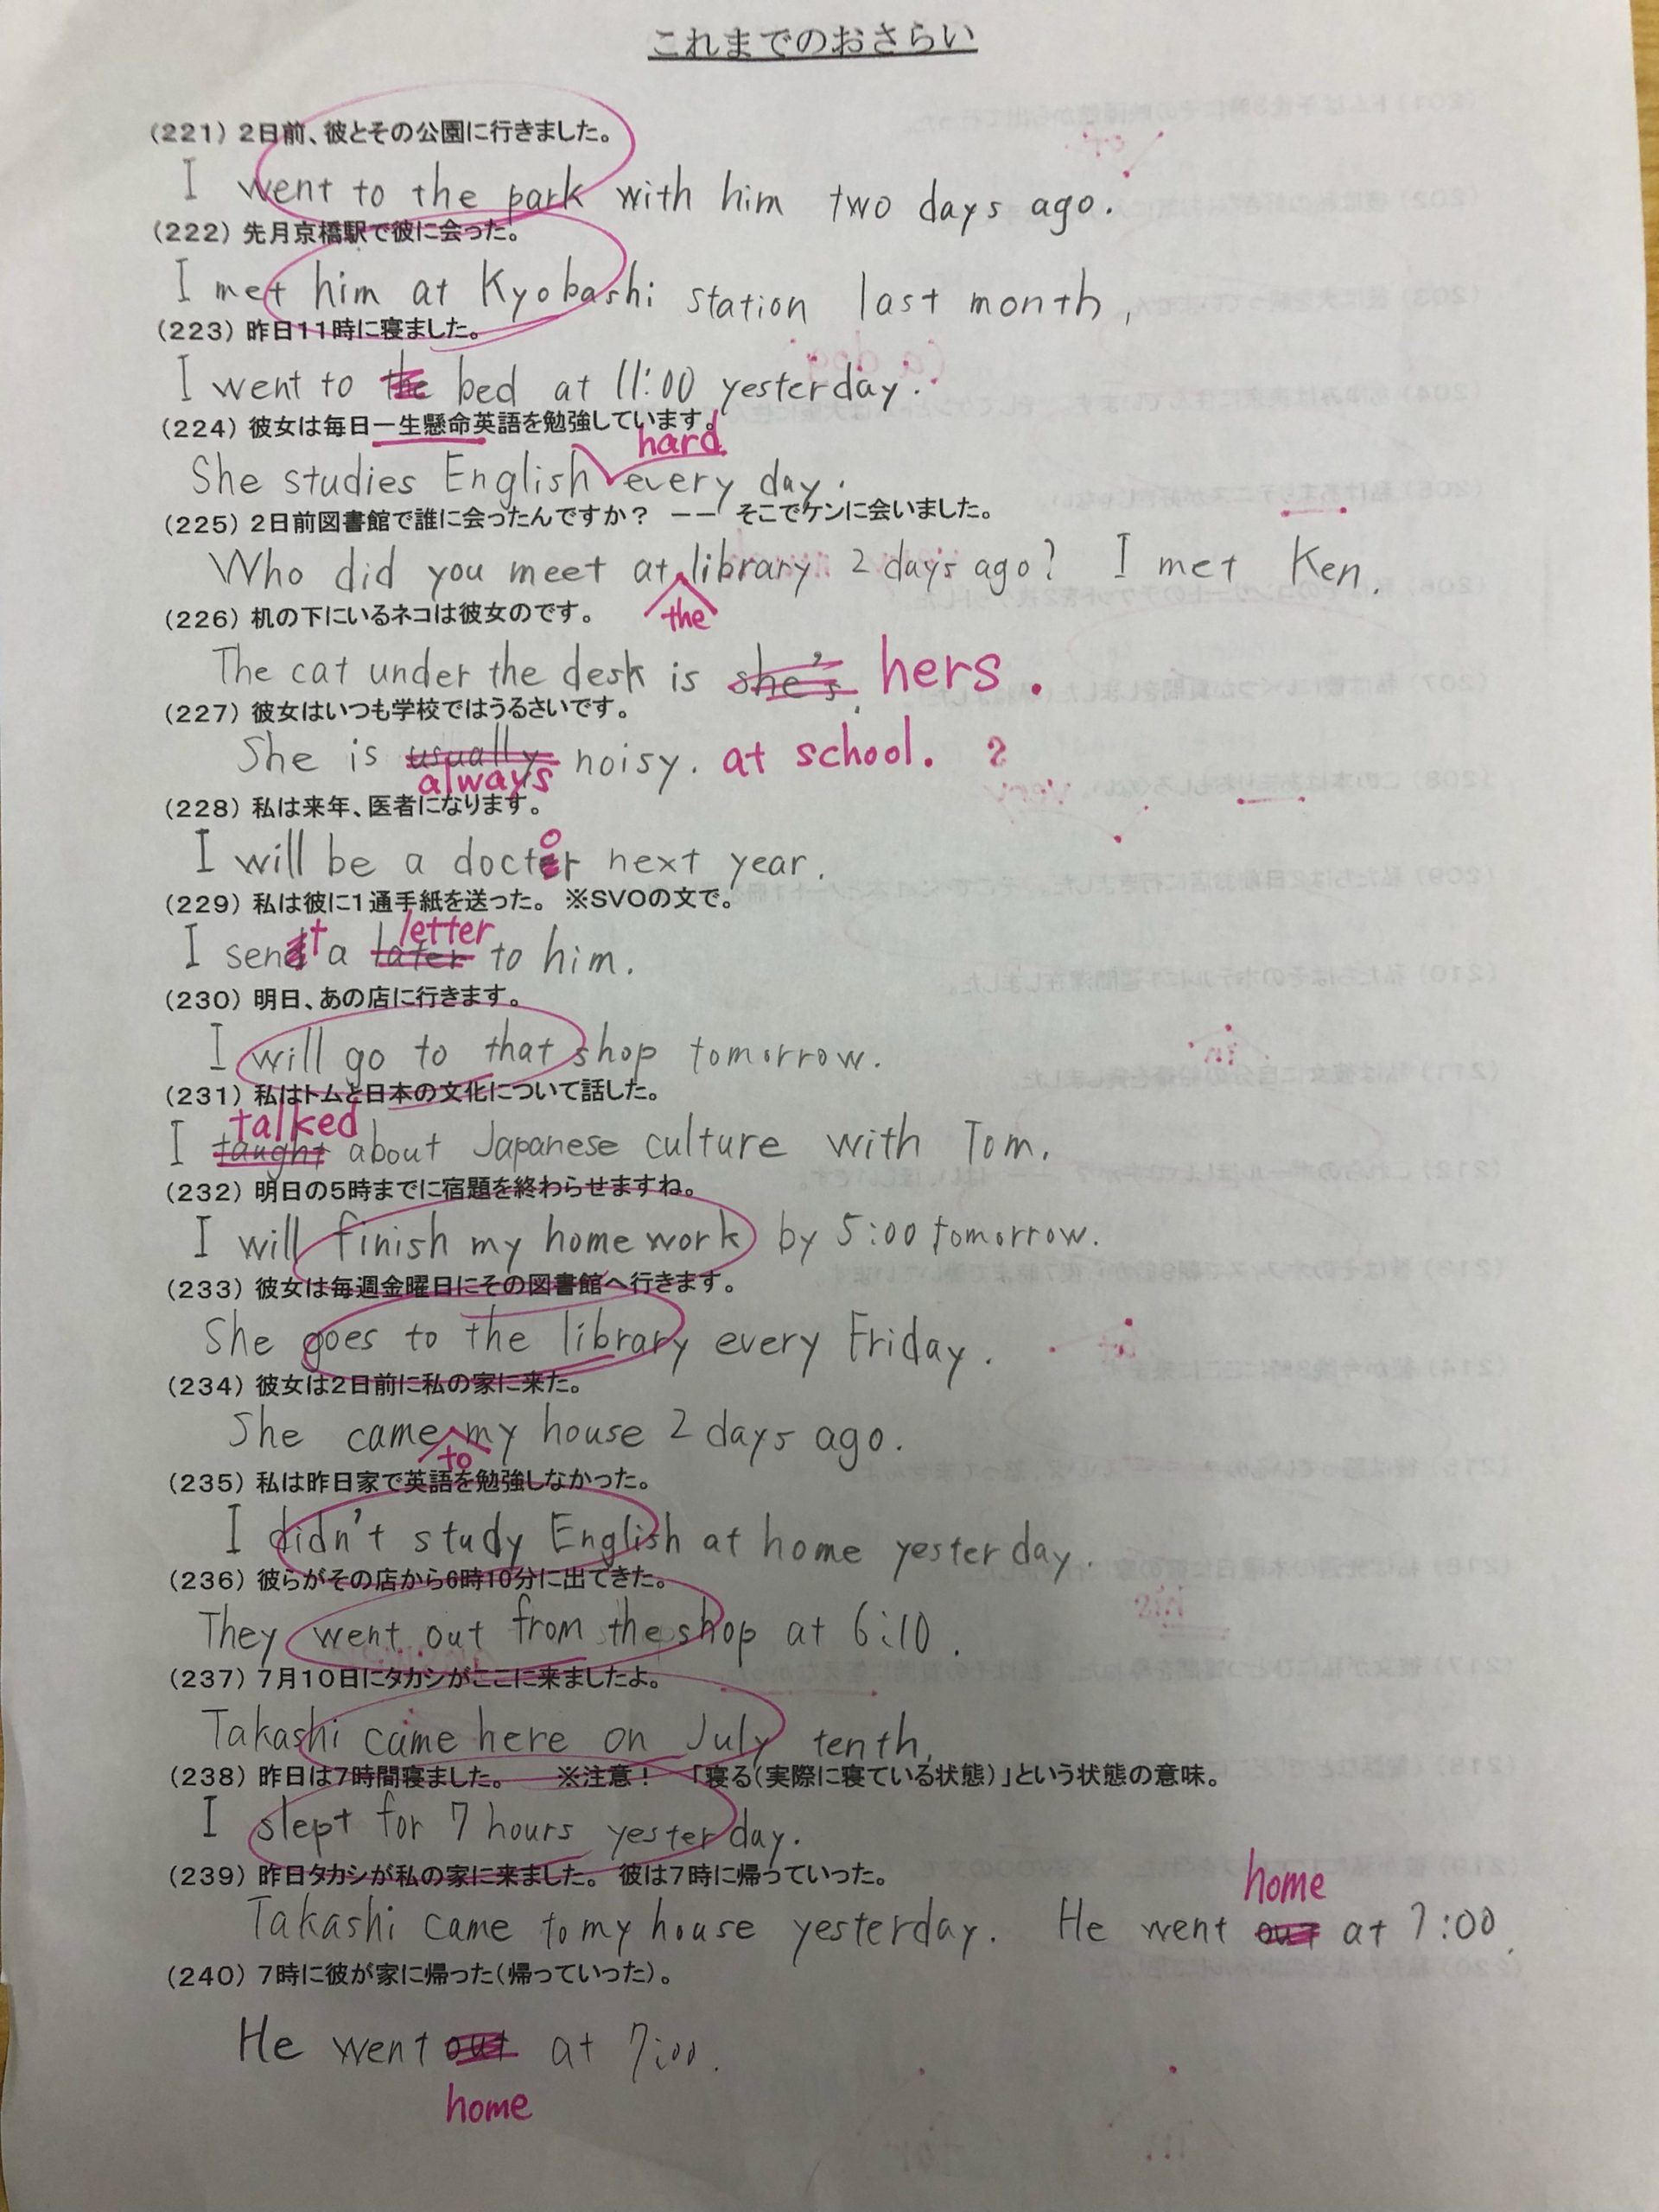 これまでのおさらい
(221) 2日前、彼とその公園に行きました。
I went to the park with him two days ago.
(222) 先月京橋駅で彼に会った。
I met him at Kyobashi station last month,
(223) 昨日11時に寝ました。
I went to the bed at 11:00 yesterday.
(224) 彼女は毎日一生懸命英語を勉強しています。
hard
She studies English every day.
(225) 2日前図書館で誰に会ったんですか? ―― そこでケンに会いました。
Who did you meet at library 2 days ago? I met Ken.
the
(226) 机の下にいるネコは彼女のです。
The cat under the desk is she's. hers.
(227) 彼女はいつも学校ではうるさいです。
She is usually noisy. at school.
always
(228) 私は来年、医者になります。
o
I will be a docter next year.
(229) 私は彼に1通手紙を送った。 ※SVOの文で。
t letter
I send a later to him.
(230) 明日、あの店に行きます。
I will go to that shop tomorrow.
(231) 私はトムと日本の文化について話した。
talked
I taught about Japanese culture with Tom.
(232) 明日の5時までに宿題を終わらせますね。
I will finish my home work by 5:00 tomorrow.
(233) 彼女は毎週金曜日にその図書館へ行きます。
She goes to the library every Friday.
(234) 彼女は2日前に私の家に来た。
She came my house 2 days ago.
to
(235) 私は昨日家で英語を勉強しなかった。
I didn't study English at home yesterday.
(236) 彼らがその店から6時10分に出てきた。
They went out from the shop at 6:10.
(237) 7月10日にタカシがここに来ましたよ。
Takashi came here on July tenth.
(238) 昨日は7時間寝ました。 ※注意! 「寝る(実際に寝ている状態)」という状態の意味。
I slept for 7 hours yesterday.
(239) 昨日タカシが私の家に来ました。 彼は7時に帰っていった。
home
Takashi came to my house yesterday. He went out at 7:00.
(240) 7時に彼が家に帰った(帰っていった)。
He went out at 7:00.
home